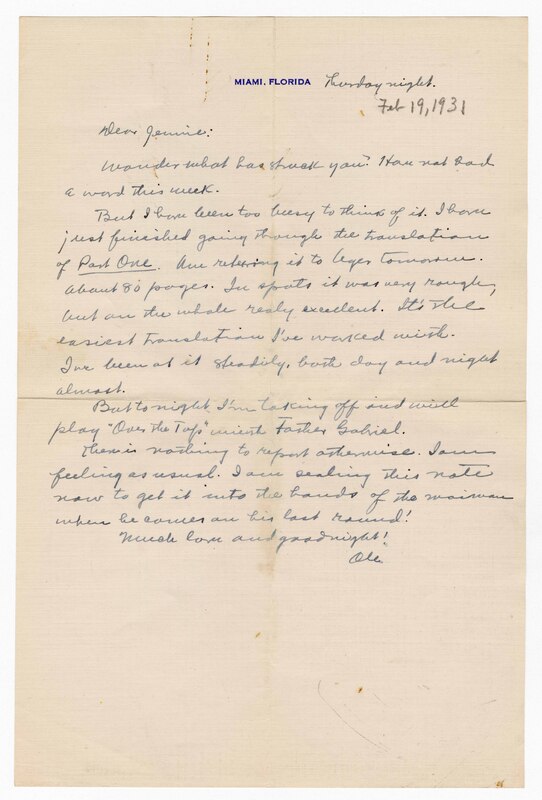 MIAMI, FLORIDA Thursday night.
Feb 19, 1931
Dear Jennie:
Wonder what has struck you? Have not had
a word this week.
But I have been too busy to think of it. I have
just finished going through the translation
of Part One. Am returning it to Ager tomorrow.
About 80 pages. In spots it was very rough,
but on the whole really excellent. It's the
easiest translation I've worked with.
I've been at it steadily, both day and night
almost.
But tonight I'm taking off and will
play "Over the Top" with Father Gabriel.
There is nothing to report otherwise. I am
feeling as usual. I am sealing this note
now to get it into the hands of the mailman
when he comes on his last round!
Much love and goodnight!
Ole